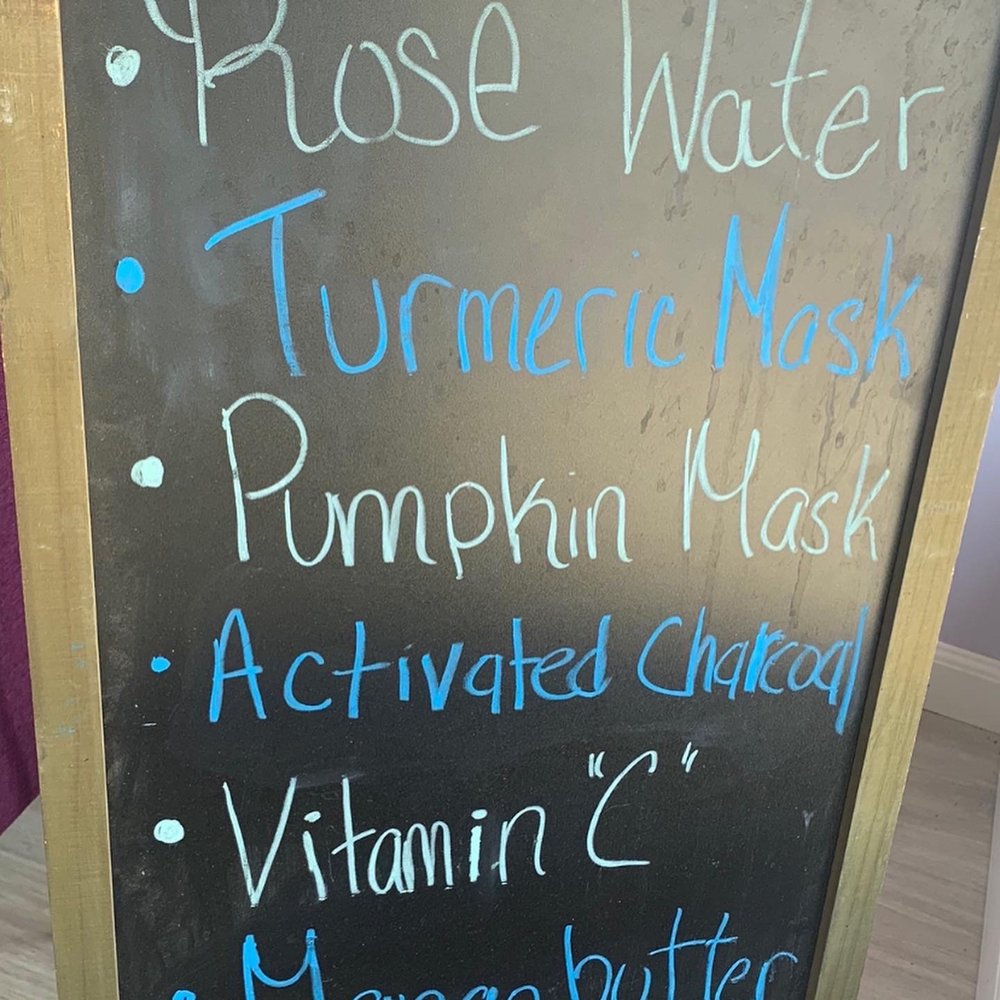 • Rose Water
• Turmeric Mask
• Pumpkin Mask
• Activated Charcoal
• Vitamin "C"
• Mango butter